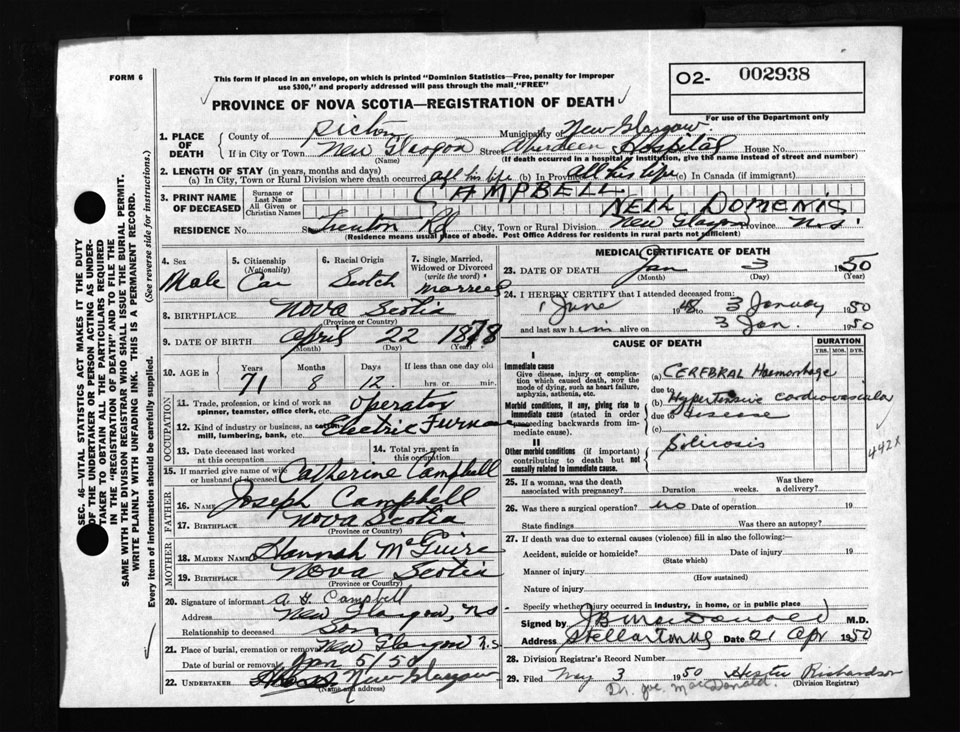 FORM 6
This form if placed in an envelope, on which is printed "Dominion Statistics—Free, penalty for improper
use $300," and properly addressed will pass through the mail "FREE"
O2- 002938
For use of the Department only
PROVINCE OF NOVA SCOTIA—REGISTRATION OF DEATH
SEC. 46—VITAL STATISTICS ACT MAKES IT THE DUTY
OF THE UNDERTAKER OR PERSON ACTING AS UNDER-
TAKER TO OBTAIN ALL THE PARTICULARS REQUIRED
IN THE "REGISTRATION OF DEATH" AND TO FILE THE
SAME WITH THE DIVISION REGISTRAR WHO SHALL ISSUE THE BURIAL PERMIT.
WRITE PLAINLY WITH UNFADING INK. THIS IS A PERMANENT RECORD.
Every item of information should be carefully supplied. (See reverse side for instructions.)
1. PLACE OF DEATH
County of Pictou Municipality of New Glasgow
If in City or Town New Glasgow Street Aberdeen Hospital House No.
(Name) (If death occurred in a hospital or institution, give the name instead of street and number)
2. LENGTH OF STAY (in years, months and days)
(a) In City, Town or Rural Division where death occurred all his life (b) In Province all his life (c) In Canada (if immigrant)
3. PRINT NAME OF DECEASED
Surname or Last Name CAMPBELL
All Given or Christian Names NEIL
RESIDENCE No. St. Trenton Rd City, Town or Rural Division New Glasgow Province N.S.
(Residence means usual place of abode. Post Office Address for residents in rural parts not sufficient)
4. Sex Male
5. Citizenship (Nationality) Can
6. Racial Origin Scotch
7. Single, Married, Widowed or Divorced (write the word) married
8. BIRTHPLACE Nova Scotia
(Province or Country)
9. DATE OF BIRTH April 22 1878
(Month) (Day) (Year)
10. AGE in Years 71 Months 8 Days 12 If less than one day old hrs. or min.
OCCUPATION
11. Trade, profession, or kind of work as spinner, teamster, office clerk, etc. operator
12. Kind of industry or business, as cotton mill, lumbering, bank, etc. Electric Furnace
13. Date deceased last worked at this occupation
14. Total yrs. spent in this occupation
15. If married give name of wife or husband of deceased Catherine Campbell
FATHER
16. Name Joseph Campbell
17. Birthplace Nova Scotia
MOTHER
18. Maiden Name Hannah McGuire
19. Birthplace Nova Scotia
(Province or Country)
20. Signature of informant A. G. Campbell
Address New Glasgow, NS
Relationship to deceased Son
21. Place of burial, cremation or removal New Glasgow N.S.
Date of burial or removal Jan 5/50
22. Undertaker New Glasgow
(Name and address)
MEDICAL CERTIFICATE OF DEATH
23. DATE OF DEATH Jan 3 1950
(Month) (Day) (Year)
24. I HEREBY CERTIFY that I attended deceased from:
1 June 1948 to 3 January 1950
and last saw him alive on 3 Jan. 1950
CAUSE OF DEATH
DURATION
YRS. MOS. DYS.
I
Immediate cause
Give disease, injury or complication which caused death, NOT the mode of dying, such as heart failure, asphyxia, asthenia, etc.
(a) CEREBRAL Haemorrhage
due to
Morbid conditions, if any, giving rise to immediate cause (stated in order proceeding backwards from immediate cause).
(b) Hypertensive cardiovascular
due to disease
(c)
II
Other morbid conditions (if important) contributing to death but not causally related to immediate cause.
Silicosis
442X
25. If a woman, was the death associated with pregnancy? Duration weeks. Was there a delivery?
26. Was there a surgical operation? no Date of operation 19
State findings Was there an autopsy?
27. If death was due to external causes (violence) fill in also the following:—
Accident, suicide or homicide? Date of injury 19
(State which)
Manner of injury
(How sustained)
Nature of injury
Specify whether injury occurred in industry, in home, or in public place
Signed by J B MacDonald M.D.
Address Stellarton Date 21 Apr 1950
28. Division Registrar's Record Number
29. Filed May 3 1950 Richardson
(Division Registrar)
Dr. Joe. MacDonald.